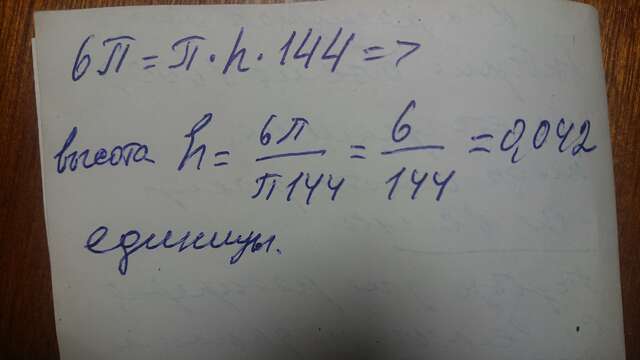 6π = π · h · 144 =>
высота h = 6π/π144 = 6/144 = 0,042
единицы.